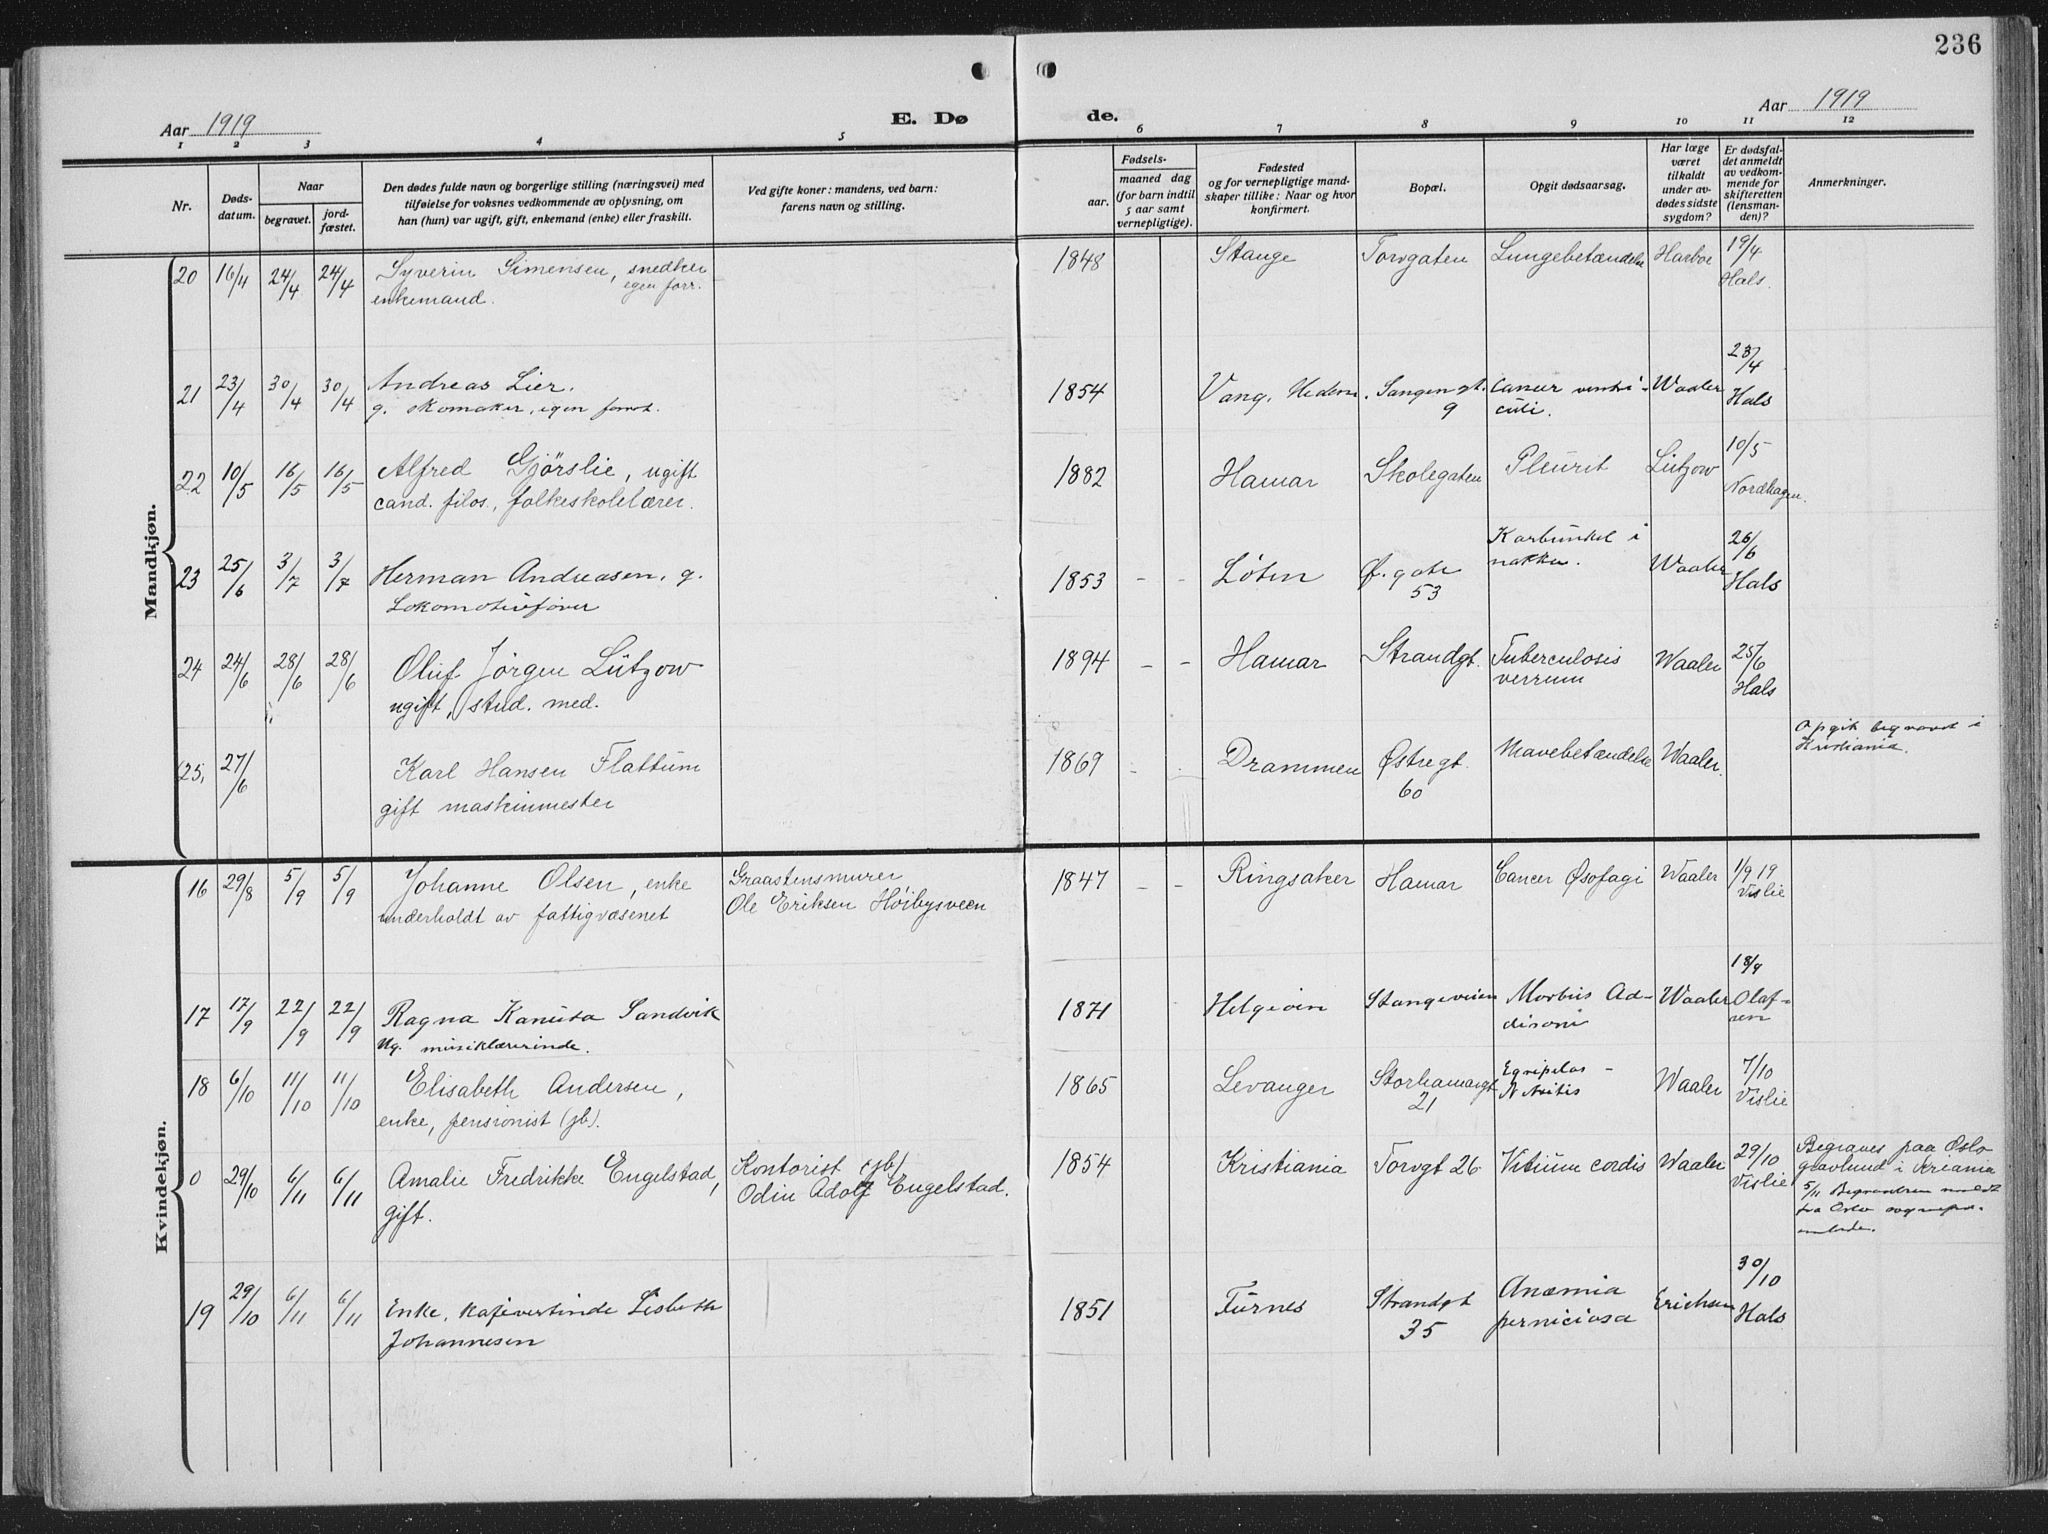 236
Aar 1919
E. Dø de.
Aar 1919
1 2 3 4 5 6 7 8 9 10 11 12
Nr.
Døds-
datum.
Naar
begravet.
jord-
fæstet.
Den dødes fulde navn og borgerlige stilling (næringsvei) med
tilføielse for voksnes vedkommende av oplysning, om
han (hun) var ugift, gift, enkemand (enke) eller fraskilt.
Ved gifte koner: mandens, ved barn:
farens navn og stilling.
Fødsels-
aar.
maaned dag
(for barn indtil
5 aar samt
vernepligtige).
Fødested
og for vernepligtige mand-
skaper tillike: Naar og hvor
konfirmert.
Bopæl.
Opgit dødsaarsag.
Har læge
været
tilkaldt
under av-
dødes sidste
sygdom?
Er dødsfal-
det anmeldt
av vedkom-
mende for
skifteretten
(lensman-
den)?
Anmerkninger.
Mandkjøn.
20 16/4 24/4 24/4 Syverin Simensen, snedker
egen forr.
enkemand.
1848 Stange Torvgaten Lungebetændelse Harboe 19/4
Hals.
21 23/4 30/4 30/4 Andreas Lier.
g. skomaker, egen forret.
1854 Vang, Hedm. Sangenst.
9
Cancer ventri-
culi.
Waaler 23/4
Hals
22 10/5 16/5 16/5 Alfred Gjörslie, ugift
cand. filos., folkeskolelærer.
1882 Hamar Skolegaten Pleurit Lützow 10/5
Nordhagen.
23 25/6 3/7 3/7 Herman Andreasen, g.
Lokomotivfører
1853 - - Løten Ø. gate
53
Karbunkel i
nakken.
Waaler 26/6
Hals
24 24/6 28/6 28/6 Oluf Jörgen Lützow
ugift, stud. med.
1894 - - Hamar Strandgt. Tuberculosis
verrum
Waaler 25/6
Hals
25. 27/6 Karl Hansen Flattum
gift maskinmester
1869 - Drammen Østregt.
60
Mavebetændelse Waaler.
Opgit begravet i
Kristiania.
Kvindekjøn.
16 29/8 5/9 5/9 Johanne Olsen, enke
underholdt av fattigvæsenet
Graastensmurer
Ole Eriksen Höibysveen
1847 - - Ringsaker Hamar Cancer Øsofagi Waaler 1/9 19
Vislie
17 17/9 22/9 22/9 Ragna Kanusa Sandvik
Ug. musiklærerinde.
1871 Helgeøen Stangeveien Morbus Ad-
disoni
Waaler 18/9
Olaf-
sen
18 6/10 11/10 11/10 Elisabeth Andersen,
enke, pensionist (jb).
1865 Levanger Storhamargt
21
Waaler 7/10
Vislie
0 29/10 6/11 6/11 Amalie Fredrikke Engelstad,
gift.
Kontorist (jb)
Odin Adolf Engelstad.
1854 Kristiania Torvgt 26 Vitium cordis Waaler 29/10
Vislie
Begraves paa Oslo
gravlund i Kr.iania
5/11 Begravelsen meldt
fra Oslo
19 29/10 6/11 6/11 Enke, kafevertinde Lisbeth
Johannesen
1851 Furnes Strandgt
35
Anæmia
perniciosa
Erichsen 30/10
Hals